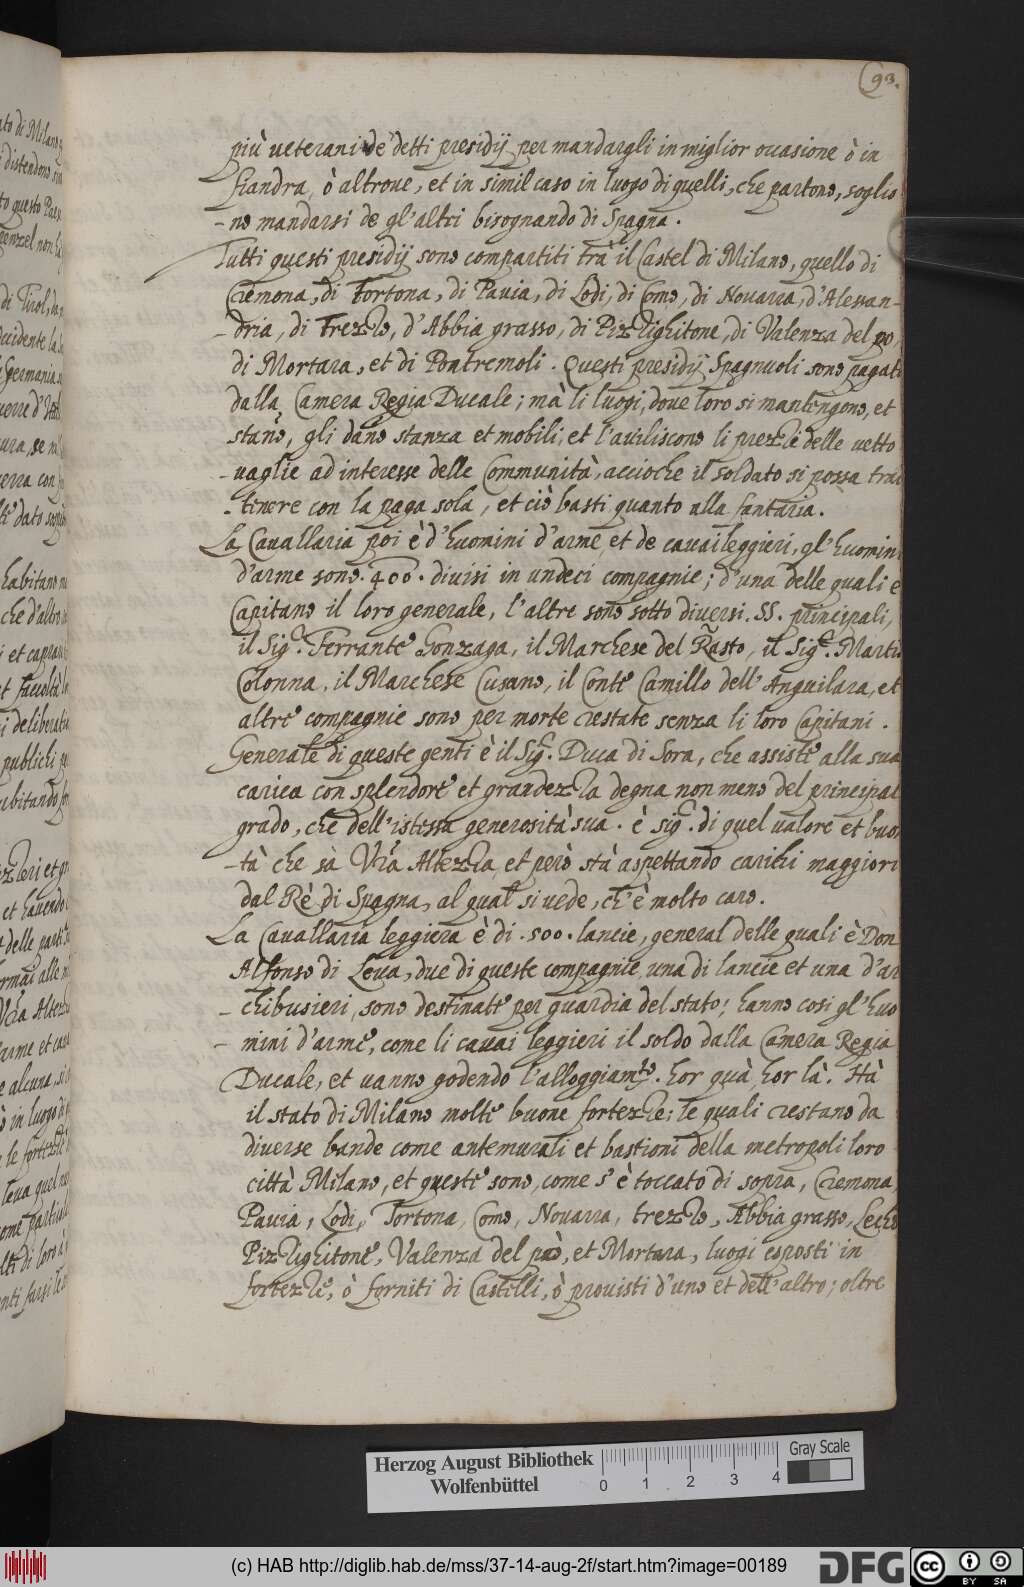 93.
più veterani de' detti presidij per mandargli in miglior occasione ò in
fiandra, ò altroue, et in simil caso in luogo di quelli, che partono, soglio
-no mandarsi de gl'altri bisognando di Spagna.
Tutti questi presidij sono compartiti trà il Castel di Milano, quello di
Cremona, di Tortona, di Pauia, di Lodi, di Como, di Nouarra, d'Alessan-
-dria, di Trezzo, d'Abbia grasso, di Pizzighitone, di Valenza del po,
di Mortara, et di Pontremoli. Questi presidij Spagnuoli sono pagati
dalla Camera Regia Ducale; mà li luogi, doue loro si mantengono, et
stano, gli dano stanza et mobili, et l'auiliscono li prezzi delle vetto
-uaglie ad interesse delle Communità, accioche il soldato si possa trat
-tenere con la paga sola, et ciò basti quanto alla fantaria.
La Cauallaria poi è d'huomini d'arme, et de cauaileggieri, gl'huomini
d'arme sono .400. diuisi in undeci compagnie; d'una delle quali è
Capitano il loro generale, l'altre sono sotto diuersi .SS. principali,
il Sigr. Ferrante Gonzaga, il Marchese del Vasto, il Sigr. Martio
Colonna, il Marchese Cusano, il Conte Camillo dell'Anguilara, et
altre compagnie sono per morte restate senza li loro Capitani.
Generale di queste genti è il Sigr. Duca di Sora, che assiste alla sua
carica con splendore et grandezza degna non meno del principal
grado, che dell'istessa generosità sua. è sigr. di quel valore et bon
-tà che sà Vra Altezza, et però stà aspettando carichi maggiori
dal Rè di Spagna, al qual si vede, ch'è molto caro.
La Cauallaria leggiera è di .500. lancie, general delle quali è Don
Alfonso di Leua, due di queste compagnie, una di lancie et una d'ar
-chibusieri, sono destinate per guardia del stato; hanno cosi gl'huo
-mini d'arme, come li cauai leggieri il soldo dalla Camera Regia
Ducale, et vanno godendo l'alloggiamto. hor quà, hor là. Hà
il stato di Milano molte buone fortezze; le quali restano da
diuerse bande come antemurali et bastioni della metropoli loro
città Milano, et queste sono, come s'è toccato di sopra, Cremona,
Pauia, Lodi, Tortona, Como, Nouarra, trezzo, Abbia grasso, Lecho
Pizzighitone, Valenza del pò, et Mortara, luogi esposti in
fortezze, ò forniti di Castelli, ò prouisti d'uno et dell'altro; oltre
Herzog August Bibliothek
Wolfenbüttel
Gray Scale
0 1 2 3 4
(c) HAB http://diglib.hab.de/mss/37-14-aug-2f/start.htm?image=00189
DFG
cc
BY SA